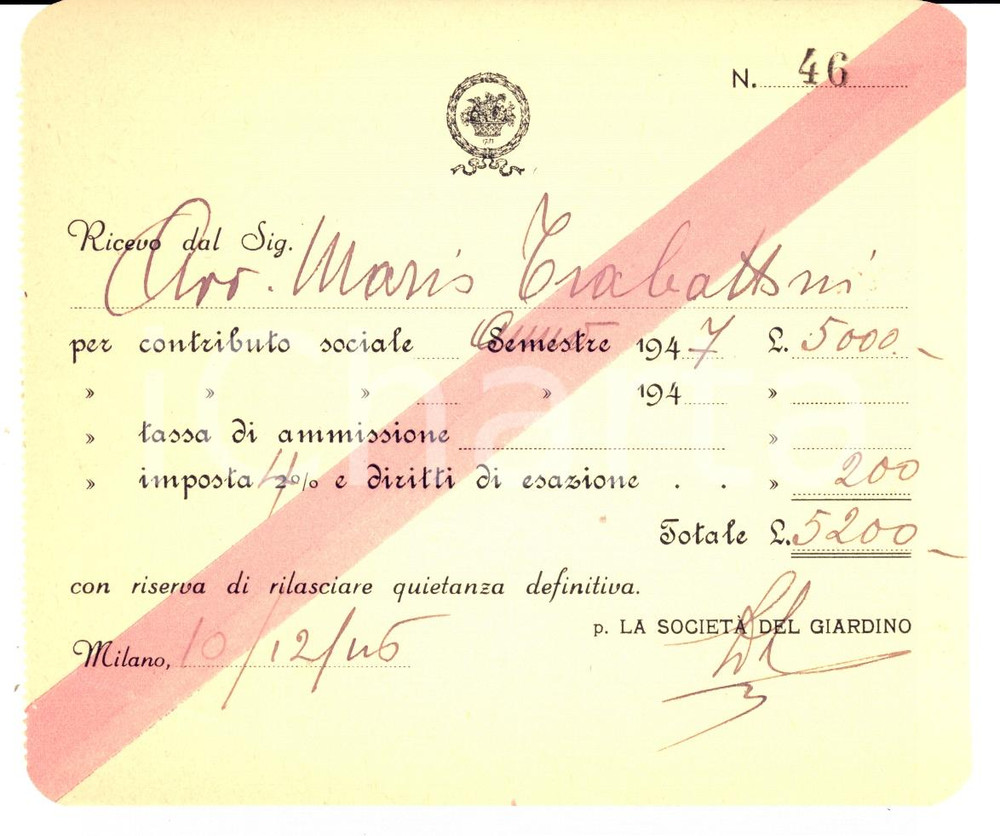 N. 46
1783
Ricevo dal Sig.
Avv. Mario Trabattoni
per contributo sociale Semestre 1947 L. 5000.-
» » » » 194 »
» tassa di ammissione »
» imposta 4% e diritti di esazione . . » 200
Totale L. 5200-
con riserva di rilasciare quietanza definitiva.
p. LA SOCIETÀ DEL GIARDINO
Milano, 10/12/46
iCharta